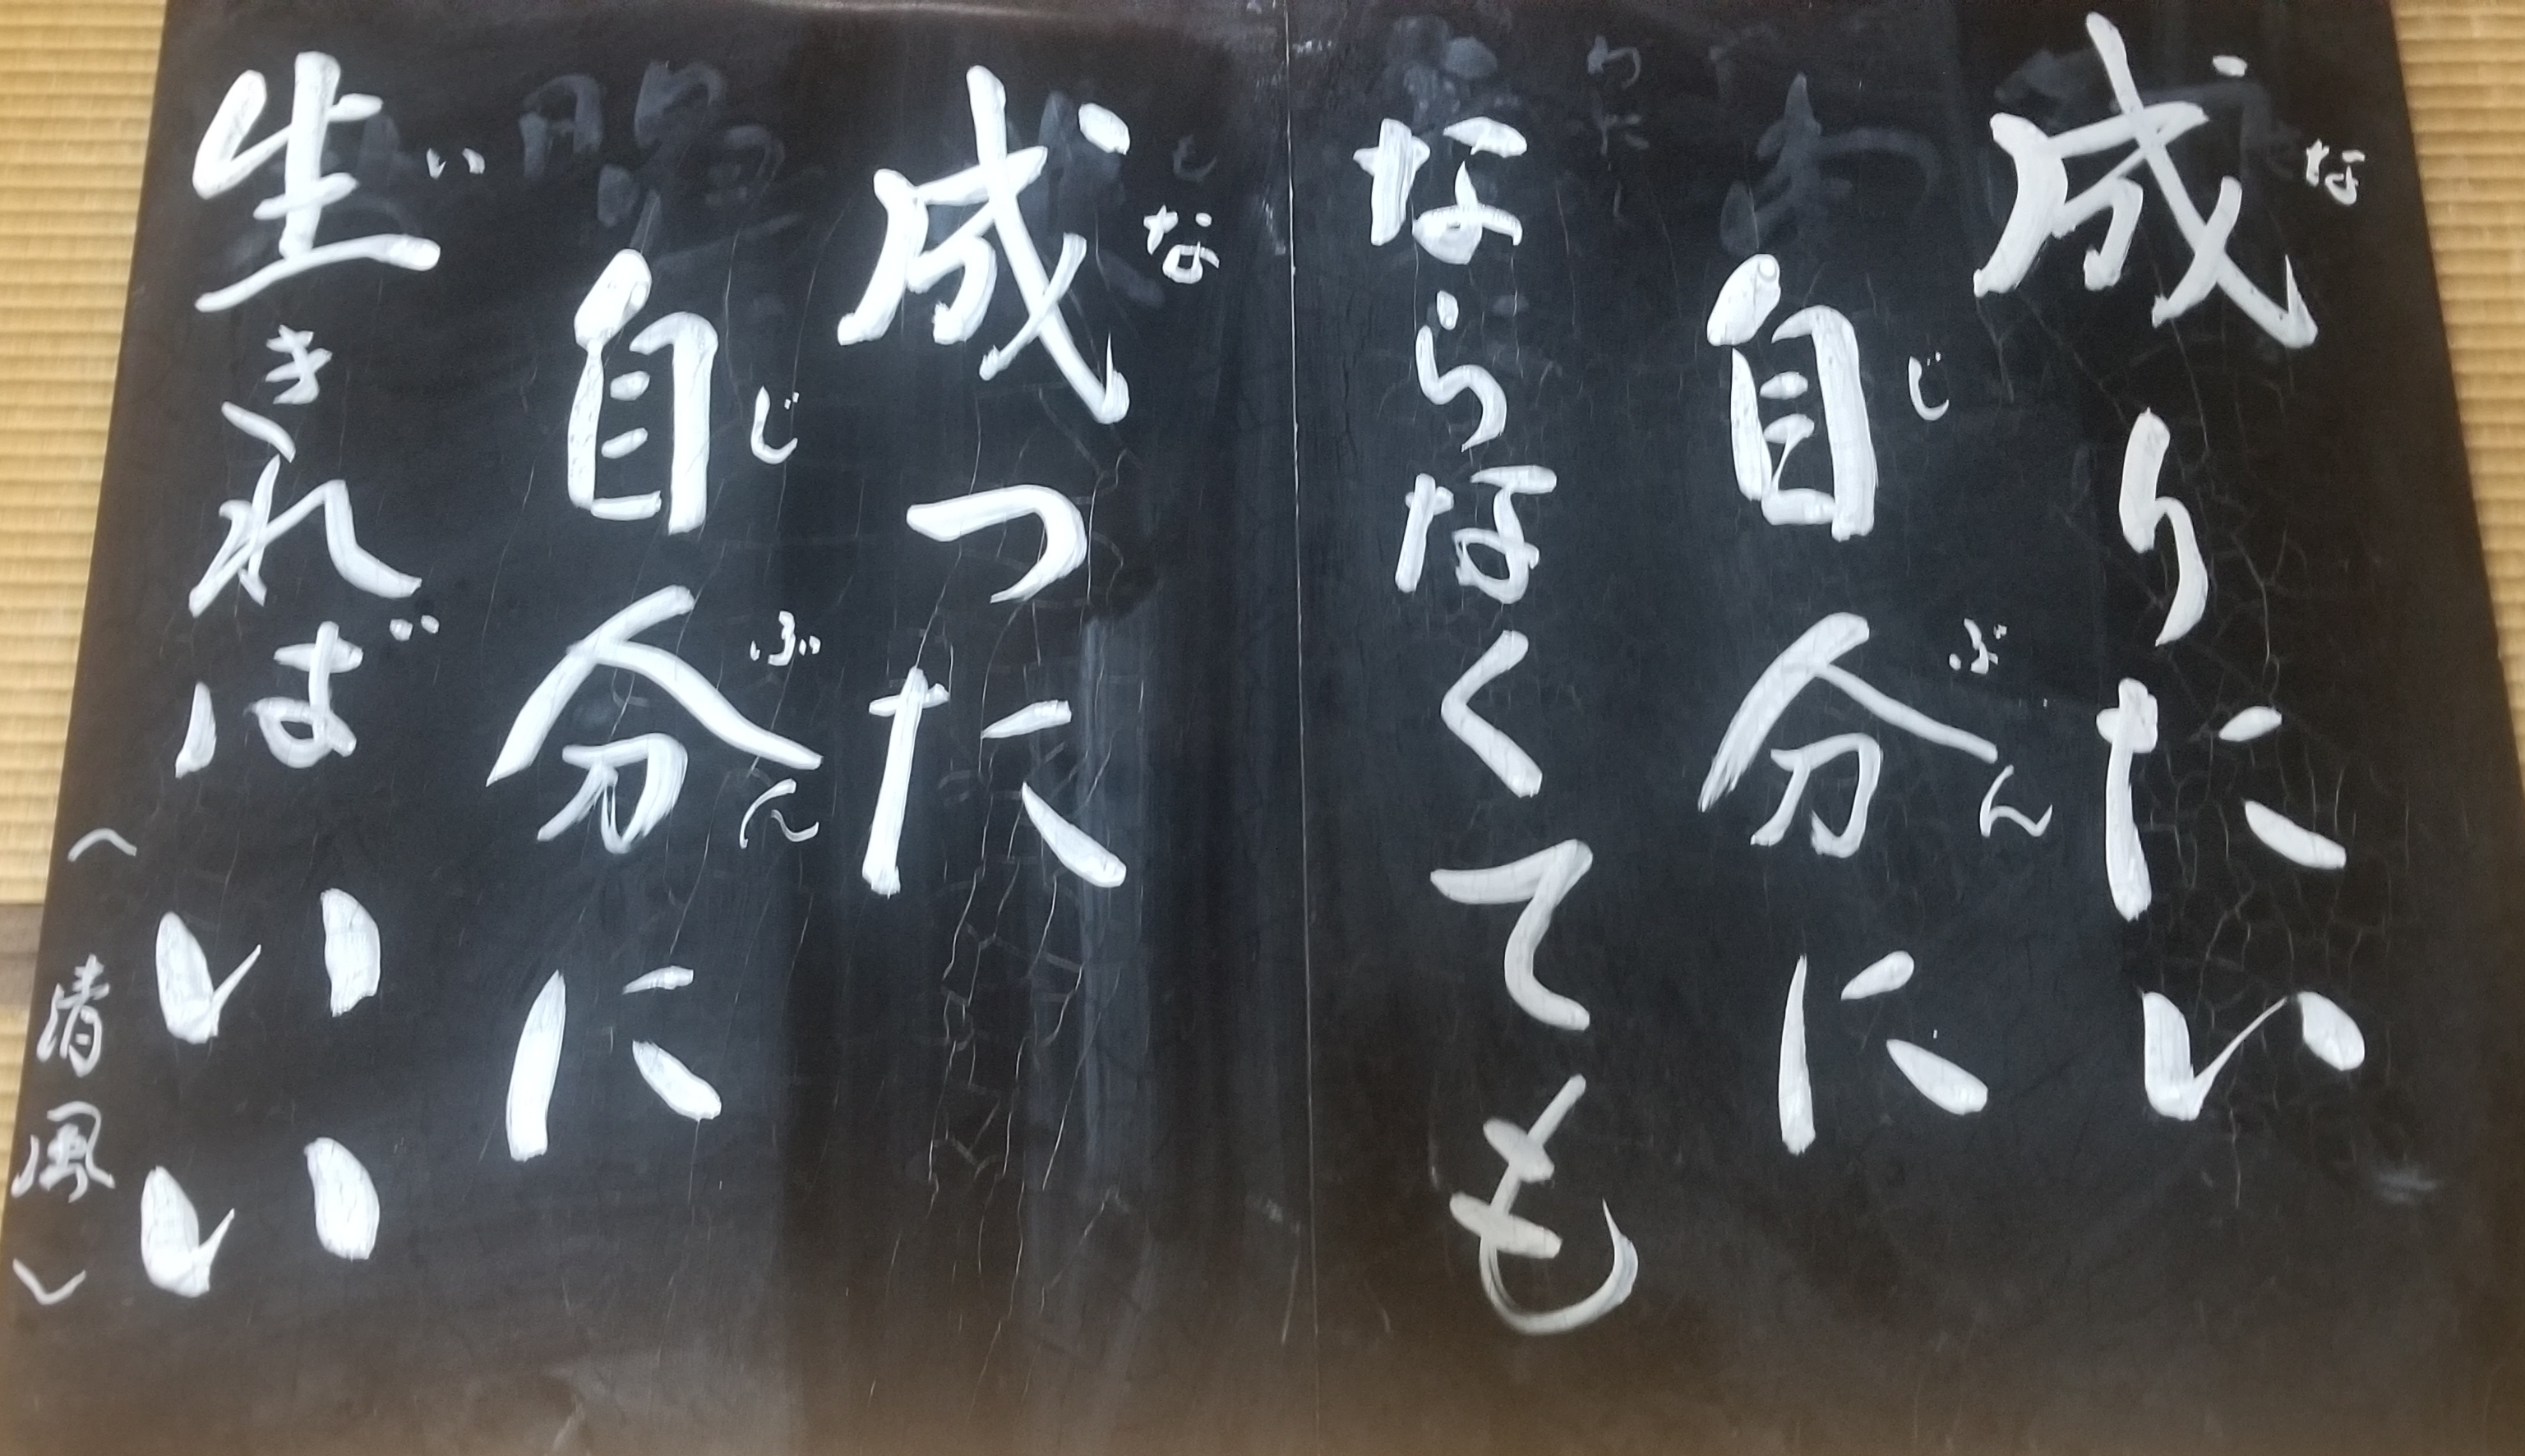 成りたい
自分に
ならなくても
成った
自分に
生きれば、
いい
(清風)